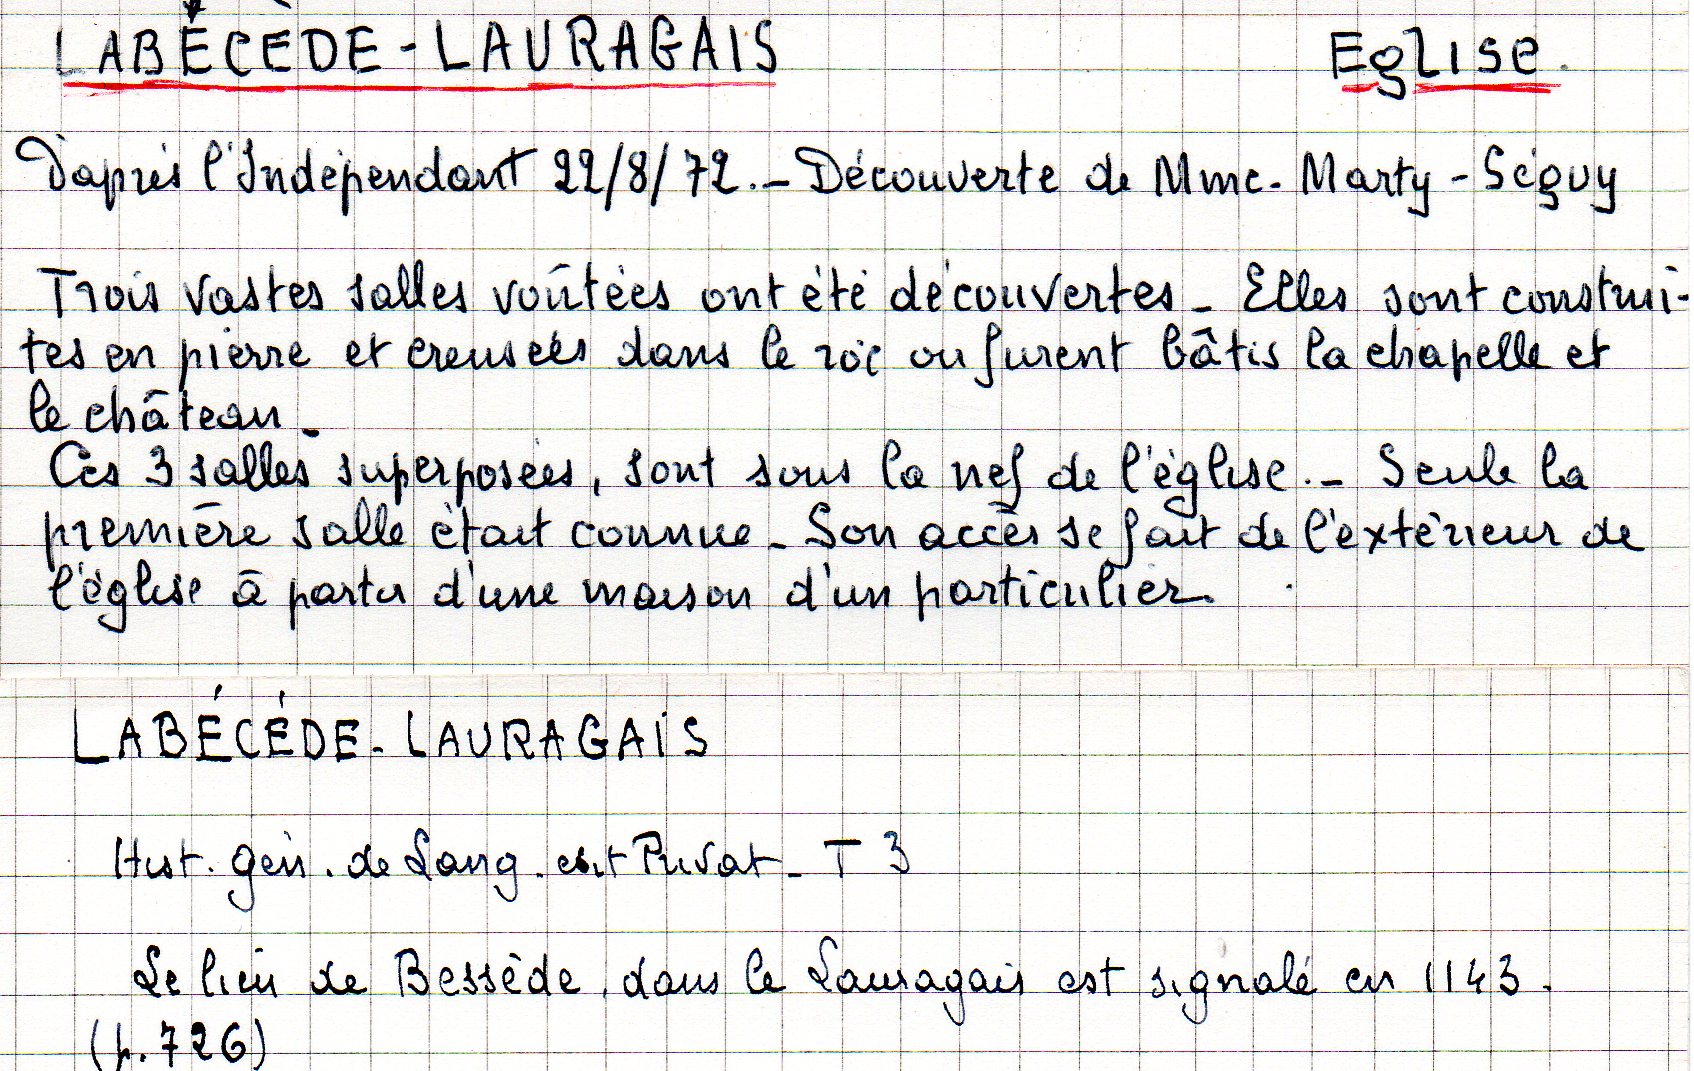 LABÉCÈDE-LAURAGAIS Eglise.
D'après l'Indépendant 22/8/72._ Découverte de Mme. Marty-Séguy
Trois vastes salles voûtées ont été découvertes _ Elles sont construi-
tes en pierre et creusées dans le roc ou furent bâtis la chapelle et
le château _
Ces 3 salles superposées, sont sous la nef de l'église._ Seule la
première salle était connue _ Son accès se fait de l'extérieur de
l'église à partir d'une maison d'un particulier.
LABÉCÉDE-LAURAGAIS
Hist. gén. de Lang. edit Privat _ T 3
Le lieu de Bessède, dans le Lauragais est signalé en 1143.
(p. 726)